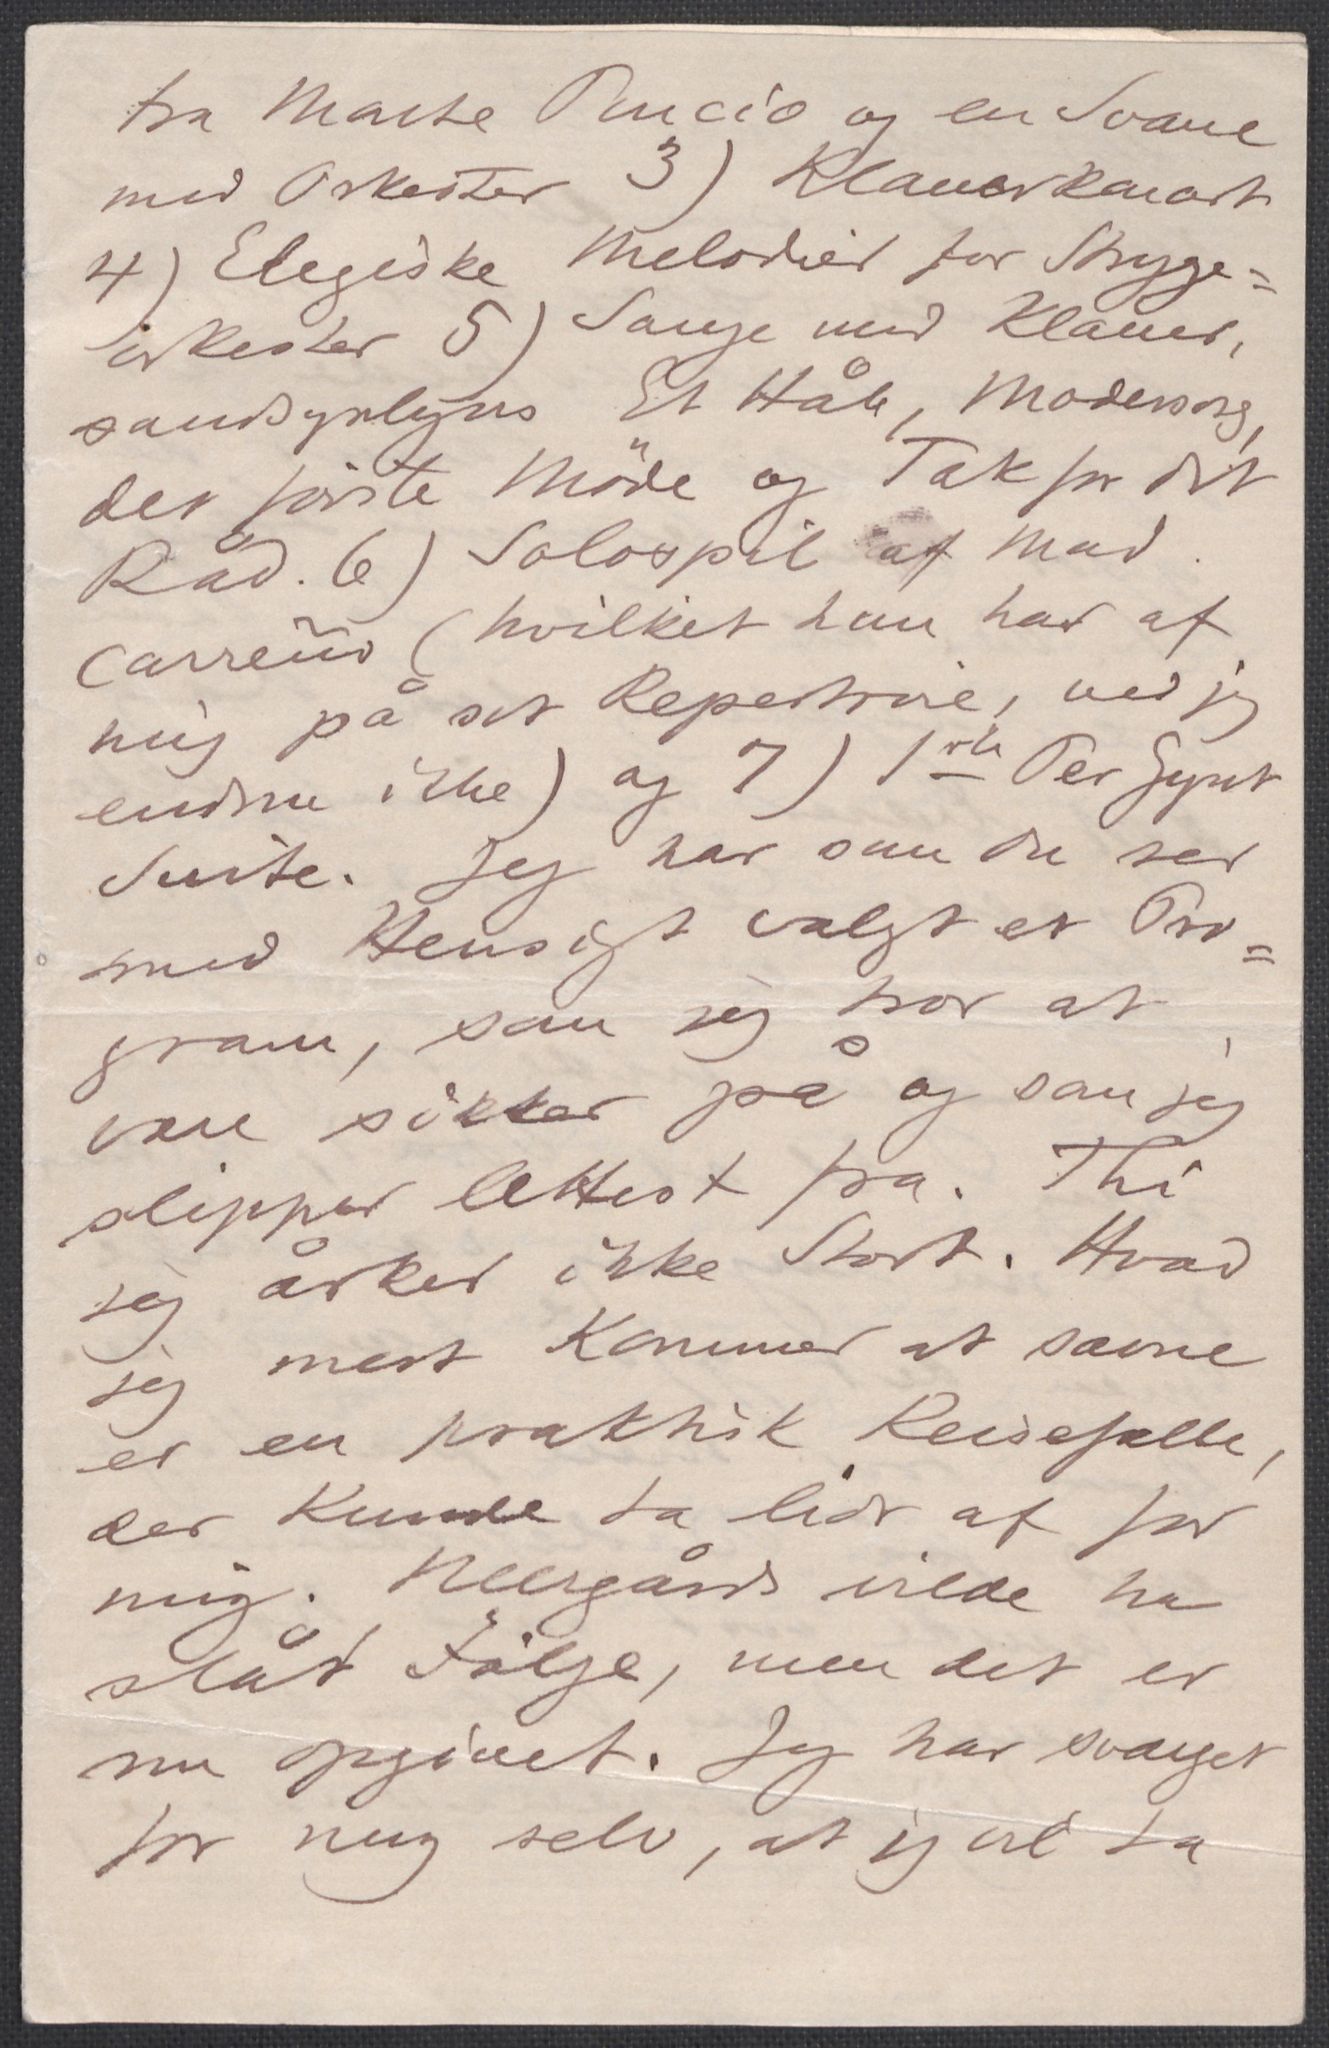 fra Monte Pincio og en Svane
med Orkester 3) Klaverkoncert
4) Elegiske Melodier for Stryge=
orkester 5) Sange med Klaver,
sandsynligvis Et Håb, Modersorg,
det første Möde og Tak for dit
Råd. 6) Solospil af Mad.
Carreño (hvilket hun har af
mig på sit Repertoire, ved jeg
endnu ikke) og 7) 1ste Per Gynt
Suite. Jeg har som du ser
med Hensigt valgt et Pro=
gram, som jeg tror at
være sikker på og som jeg
slipper lettest fra. Thi
jeg årker ikke Stort. Hvad
jeg mest kommer at savne
er en praktisk Reisefælle,
der kunde ta lidt af for
mig. Neergårds vilde ha
slåt Fölge, men det er
nu opgivet. Jeg har svoret
for mig selv, at jeg vil ta